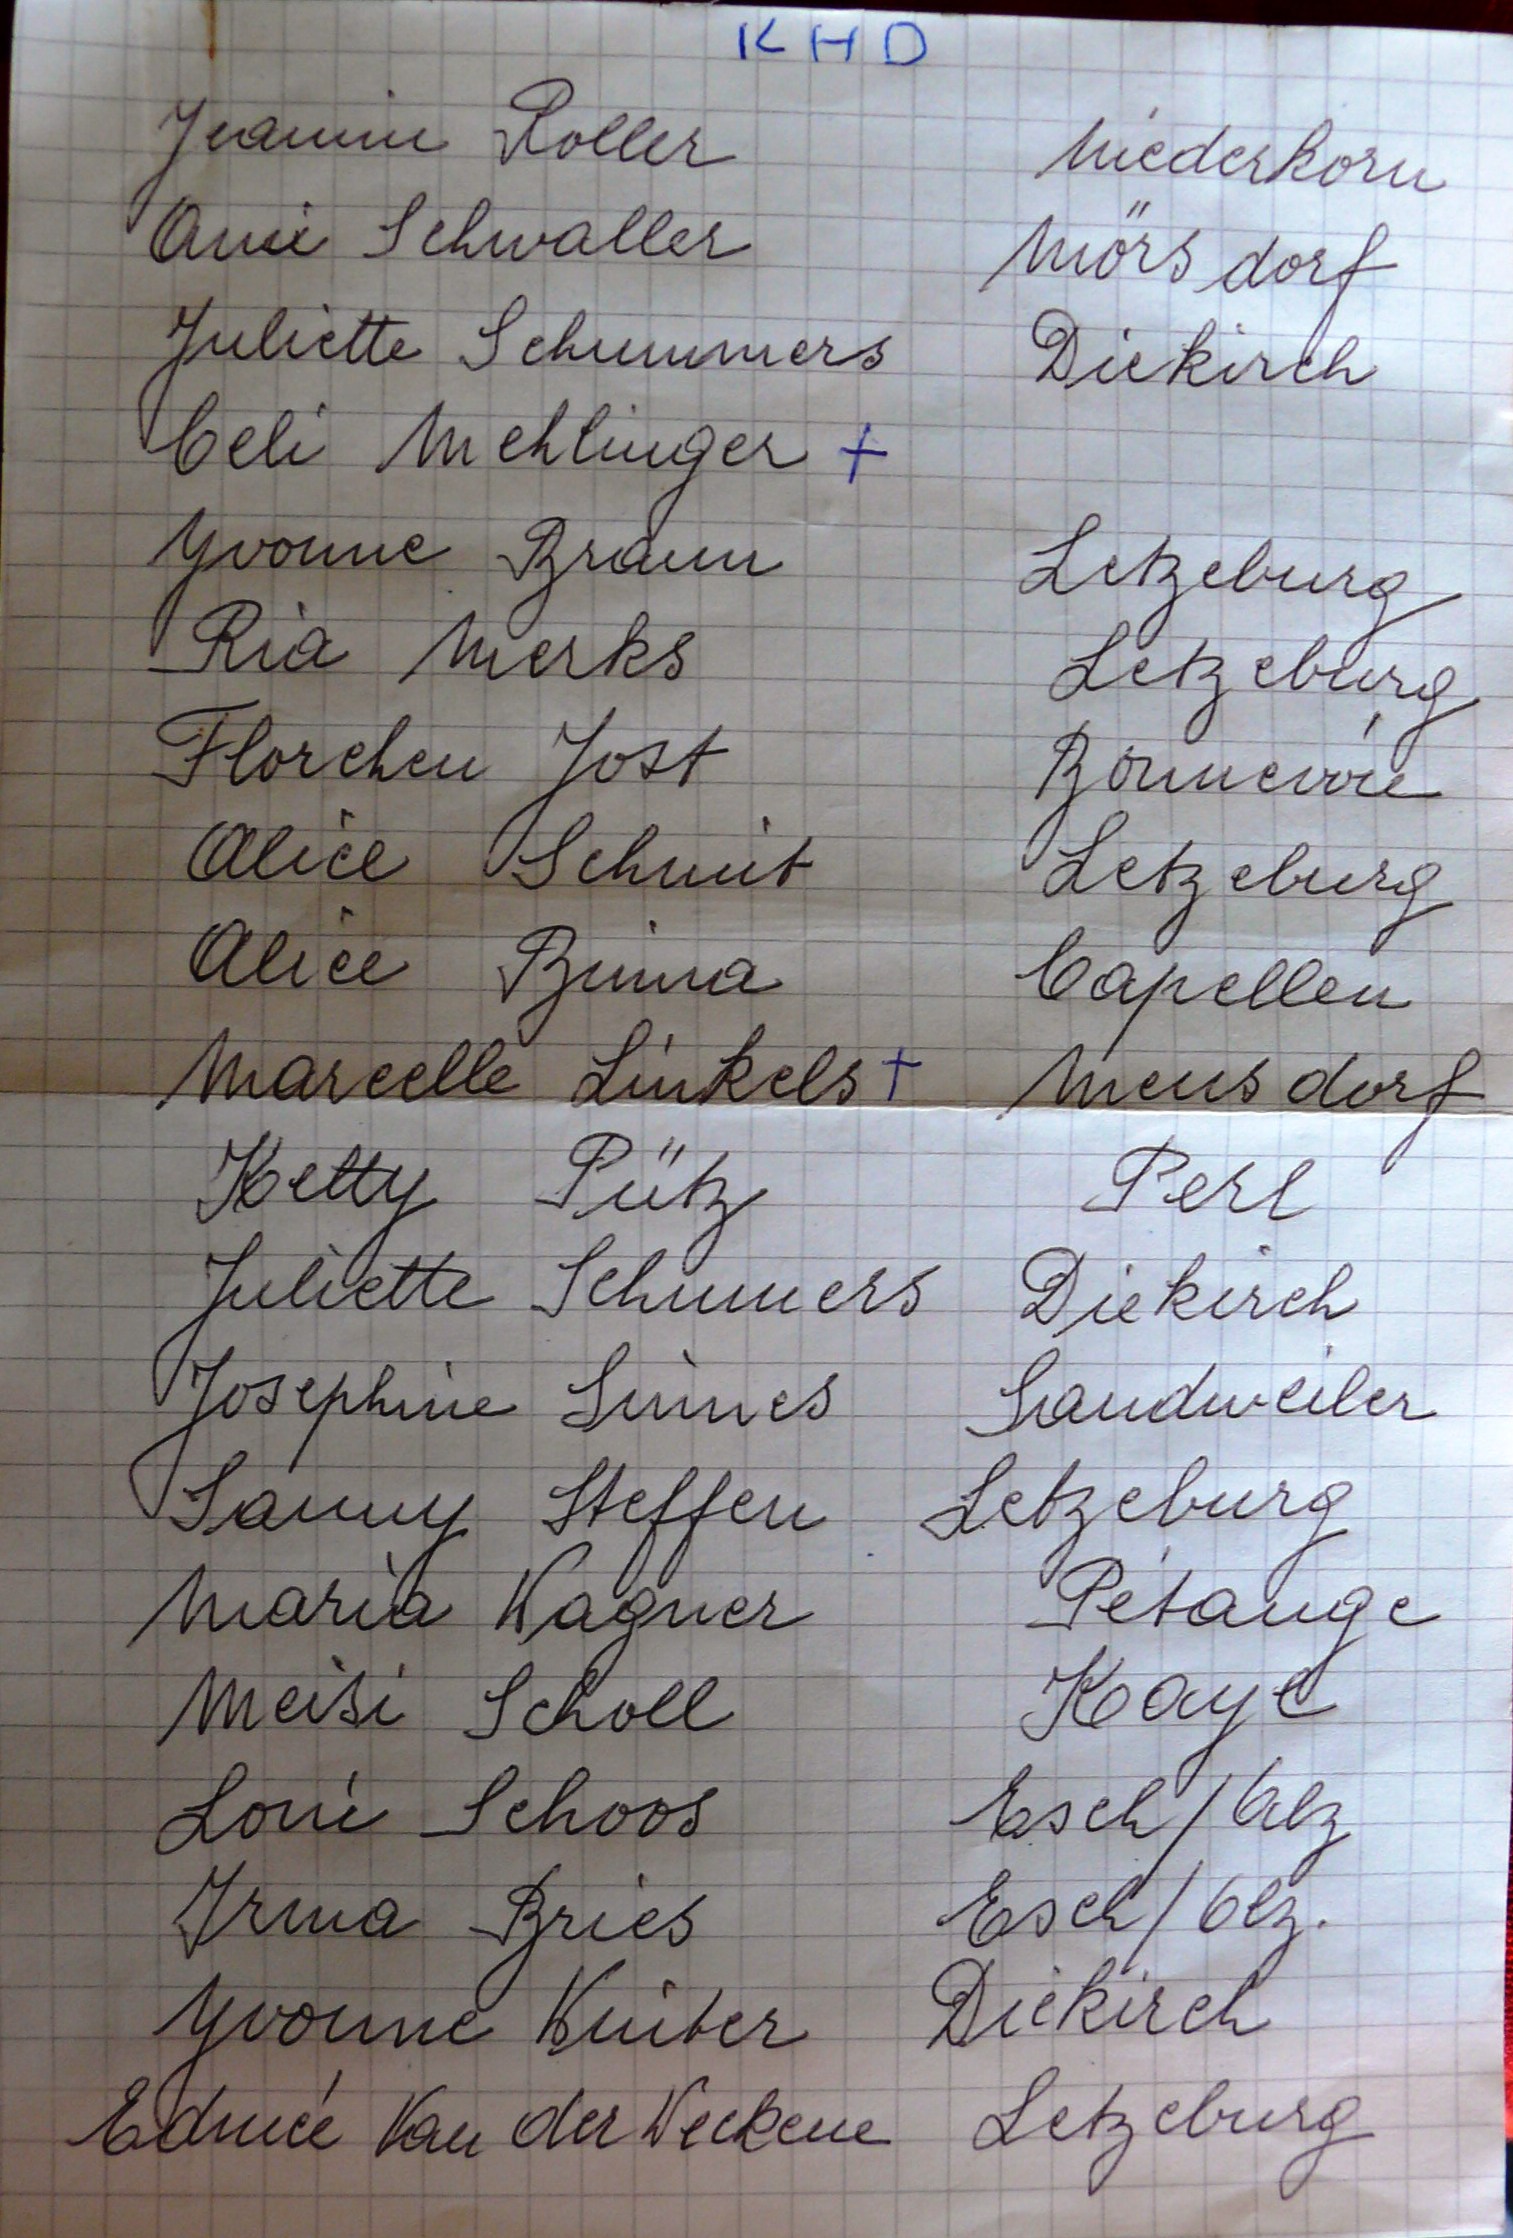 KHD
Jeannie Roller Niederkorn
Anni Schwaller Mörsdorf
Juliette Schummers Diekirch
Celi Mehlinger +
Yvonne Braun Letzeburg
Ria Merks Letzeburg
Florchen Jost Bonnevoie
Alice Schmit Letzeburg
Alice Capellen
Marcelle Linkels + Mensdorf
Ketty Pütz Perl
Juliette Schumers Diekirch
Josephine Simes Sandweiler
Sanny Steffen Letzeburg
Maria Wagner Pétange
Meisi Scholl Kayl
Loni Schoos Esch/Alz
Irma Bries Esch/Alz.
Yvonne Diekirch
Edmée Van der Weckene Letzeburg